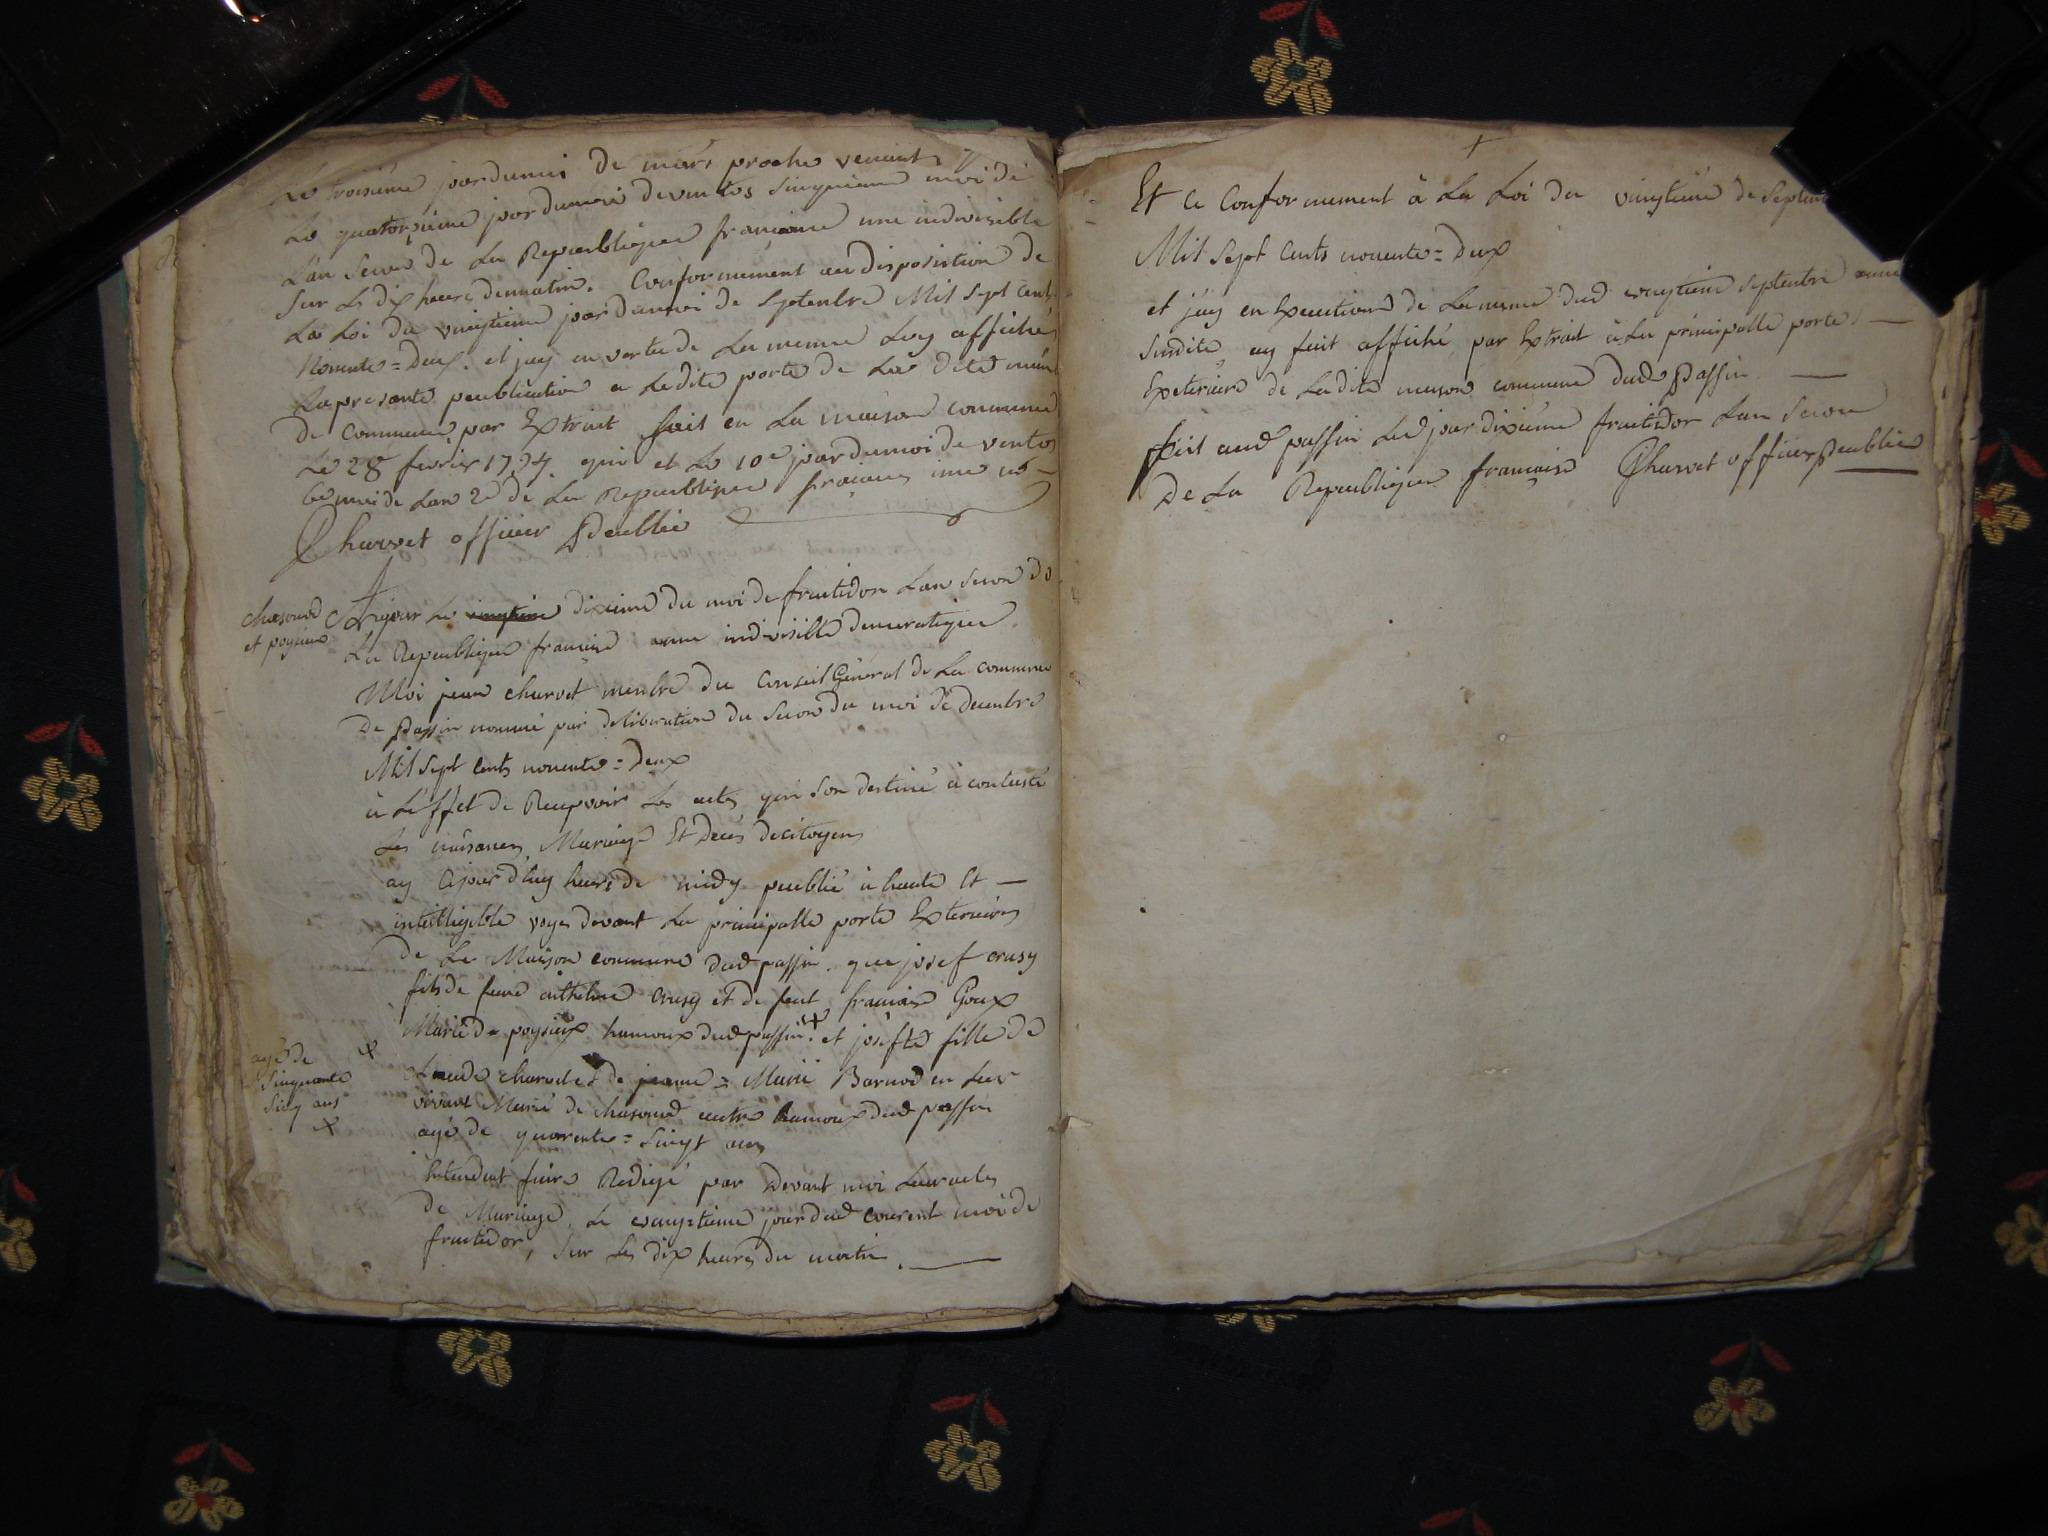 Le troisième jour du moi de mars proche venant
Le quatorzieme jour du moi de ventos singuieme moi de
L'an secon de La Republique francaise une indivisible
sur Le dix heure du matin. Conformément au disposition de
La Loi du vingtieme jour du moi de septenbre Mil sept cent
Nonente=Deux. et jay en vertu de La meme Loy affiché
La presante peublication a Ledite porte de La dite
De commune par Extrait fait en La maison commune
Le 28 fevrier 1794 qui et Le 10e jour du moi de ventos
6e moi de L'an 2e de La Republique
Charvet officier Peublic
chasoud
et poysieux
jour Le dixieme du moi de fruitidor L'an secon de
La Republique francaise une indivisible democratique
Moi jean charvet menbre du Conseil Général de La commune
De Passin nommé par deliberation du secon du moi de decenbre
Mil sept cents nonente=Deux
à L'éffet de Recepvoir Les actes qui son destiné à contasté
Les naisances Mariage Et Deces de citoyens
ay cejourd'huy heure de midy peublié à haute Et —
intelligible voye devant La principalle porte Exterieure
de La Maison commune dud passin. que josef crusy
fils de feue anthelme crusy et de feut francoise Goux
Marié de poysieux hamoux dud passin + et josefte fille de
Claude charvet et de jeanne=Marie Barnod en Leur
vivant Marié de chasoud autre hamoux dud passin
agé de quarente=singt ans
agé de
singuante
sing ans
Entendent faire Redigé par Devant moi Leur actes
de Mariage. Le vaingtieme jour dud courent moi de
fruitidor, sur Les dix heures du matin. —
Et ce Conformement à La Loi du vingtième de septenbre
Mil sept Cents nonente=Deux
et j'ay en Execution de La meme dud vingtieme septenbre
susdite ay fait affiché par Extrait à La principalle porte —
Exterieure de La dite maison commune dud Passin —
fait aud passin Led jour dixième fruitidor L'an secon
De La Republique francaise Charvet officier Peublic